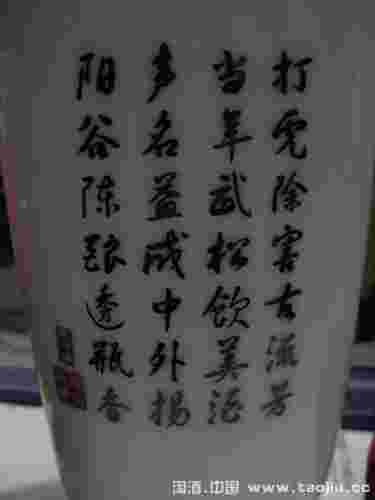 阳谷陈酿透瓶香
名益成中外扬
当年武松饮美酒
打虎除害古流芳
国酒.中国 www.taojiu.cc